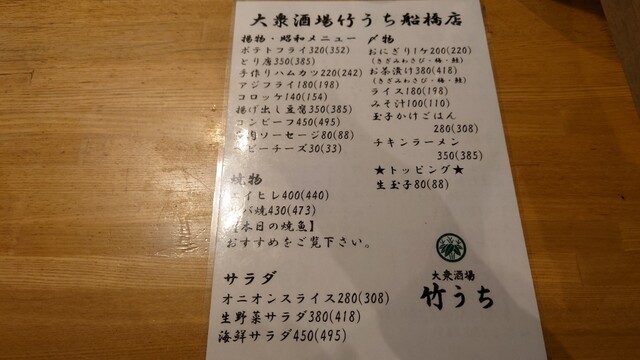 大衆酒場竹うち船橋店
揚物・昭和メニュー
ポテトフライ320(352)
とり唐350(385)
手作りハムカツ220(242)
アジフライ180(198)
コロッケ140(154)
揚げ出し豆腐350(385)
コンビーフ450(495)
肉ソーセージ80(88)
ビーチーズ30(33)
焼物
エイヒレ400(440)
バ焼430(473)
【本日の焼魚】
おすすめをご覧下さい。
サラダ
オニオンスライス280(308)
生野菜サラダ380(418)
海鮮サラダ450(495)
〆物
おにぎり1ケ200(220)
(きざみわさび・梅・鮭)
お茶漬け380(418)
(きざみわさび・梅・鮭)
ライス180(198)
みそ汁100(110)
玉子かけごはん
280(308)
チキンラーメン
350(385)
★トッピング★
生玉子80(88)
大衆酒場
竹うち